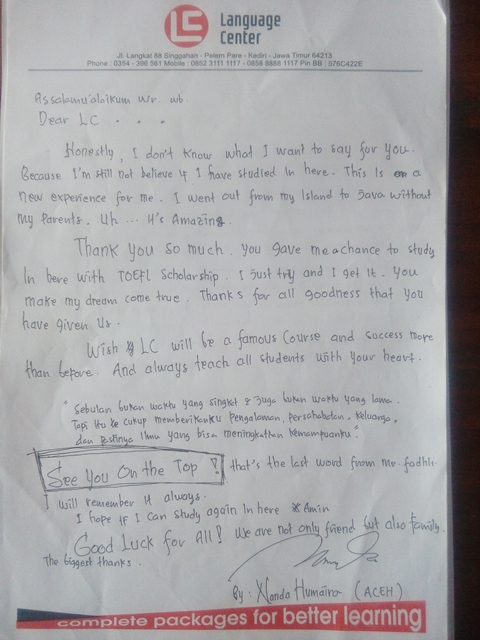 LC Language
Center
Jl. Langkat 88 Singgahan - Pelem Pare - Kediri - Jawa Timur 64213
Phone : 0354 - 396 561 Mobile : 0852 3111 1117 - 0856 8888 1117 Pin BB : 576C422E
Assalamu'alaikum Wr. wb.
Dear LC . . .
Honestly, I don't know what I want to say for you.
Because I'm still not believe if I have studied In here. This Is a
new experience for me. I went out from my Island to Java without
my Parents. Uh ... It's Amazing.
Thank you so much. you gave me a chance to study
In here with TOEFL Scholarship. I just try and I get It. You
make my dream come true. Thanks for all goodness that you
have given us.
Wish LC will be a famous Course and success more
than before. And always teach all students with your heart.
"Sebulan bukan waktu yang singkat & juga bukan waktu yang lama.
Tapi itu cukup memberikanku Pengalaman, persahabatan, keluarga,
dan pastinya Ilmu yang bisa meningkatkan kemampuanku."
See You On the Top ! that's the last word from Mr. fadhli.
I will remember It always.
I hope If I can study again In here *Amin
Good Luck for All! We are not only friend but also family.
The biggest thanks.
By : Nanda Humaira (ACEH)
complete packages for better learning